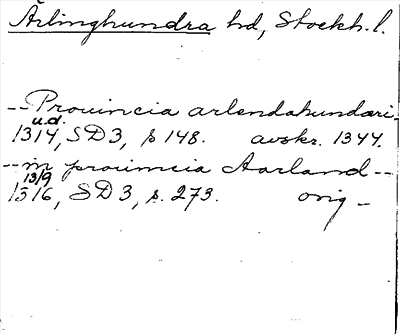 Ärlinghundra hd, Stockh. l.
--Provincia arlendahundari-
u.d.
1314, SD 3, s 148. avskr. 1344.
--in provincia Aarland--
13/9
1316, SD 3, s. 273. orig-